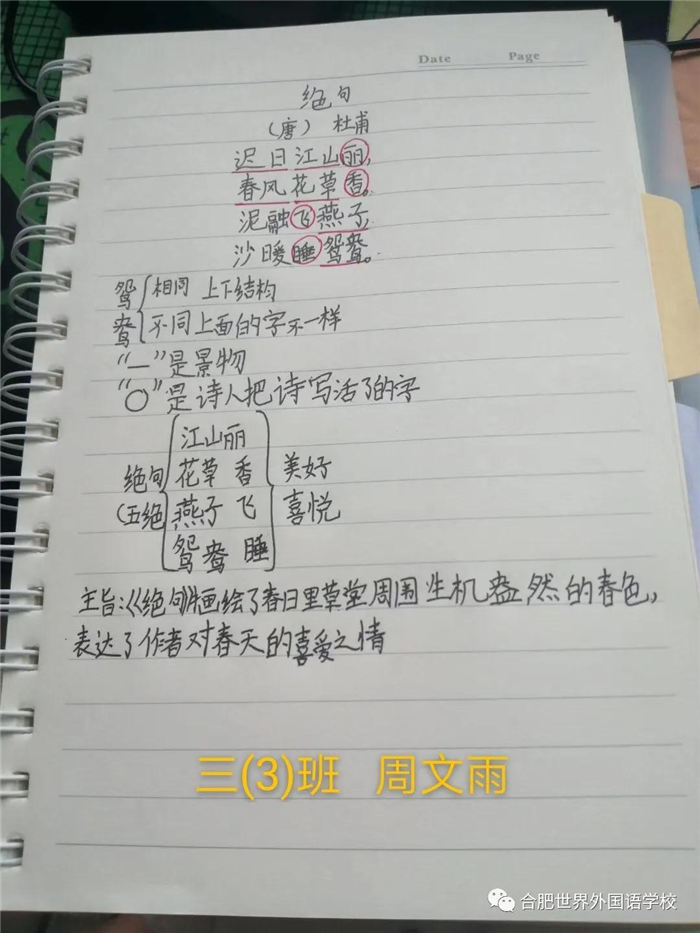 Date Page
绝句
（唐） 杜甫
迟日江山丽，
春风花草香。
泥融飞燕子，
沙暖睡鸳鸯。
鸳 相同 上下结构
鸯 不同上面的字不一样
“—”是景物
“○”是诗人把诗写活了的字
江山丽
绝句 花草 香 美好
（五绝 燕子 飞 喜悦
鸳鸯 睡
主旨：《绝句》描绘了春日里草堂周围生机盎然的春色，
表达了作者对春天的喜爱之情
三(3)班 周文雨
合肥世界外国语学校